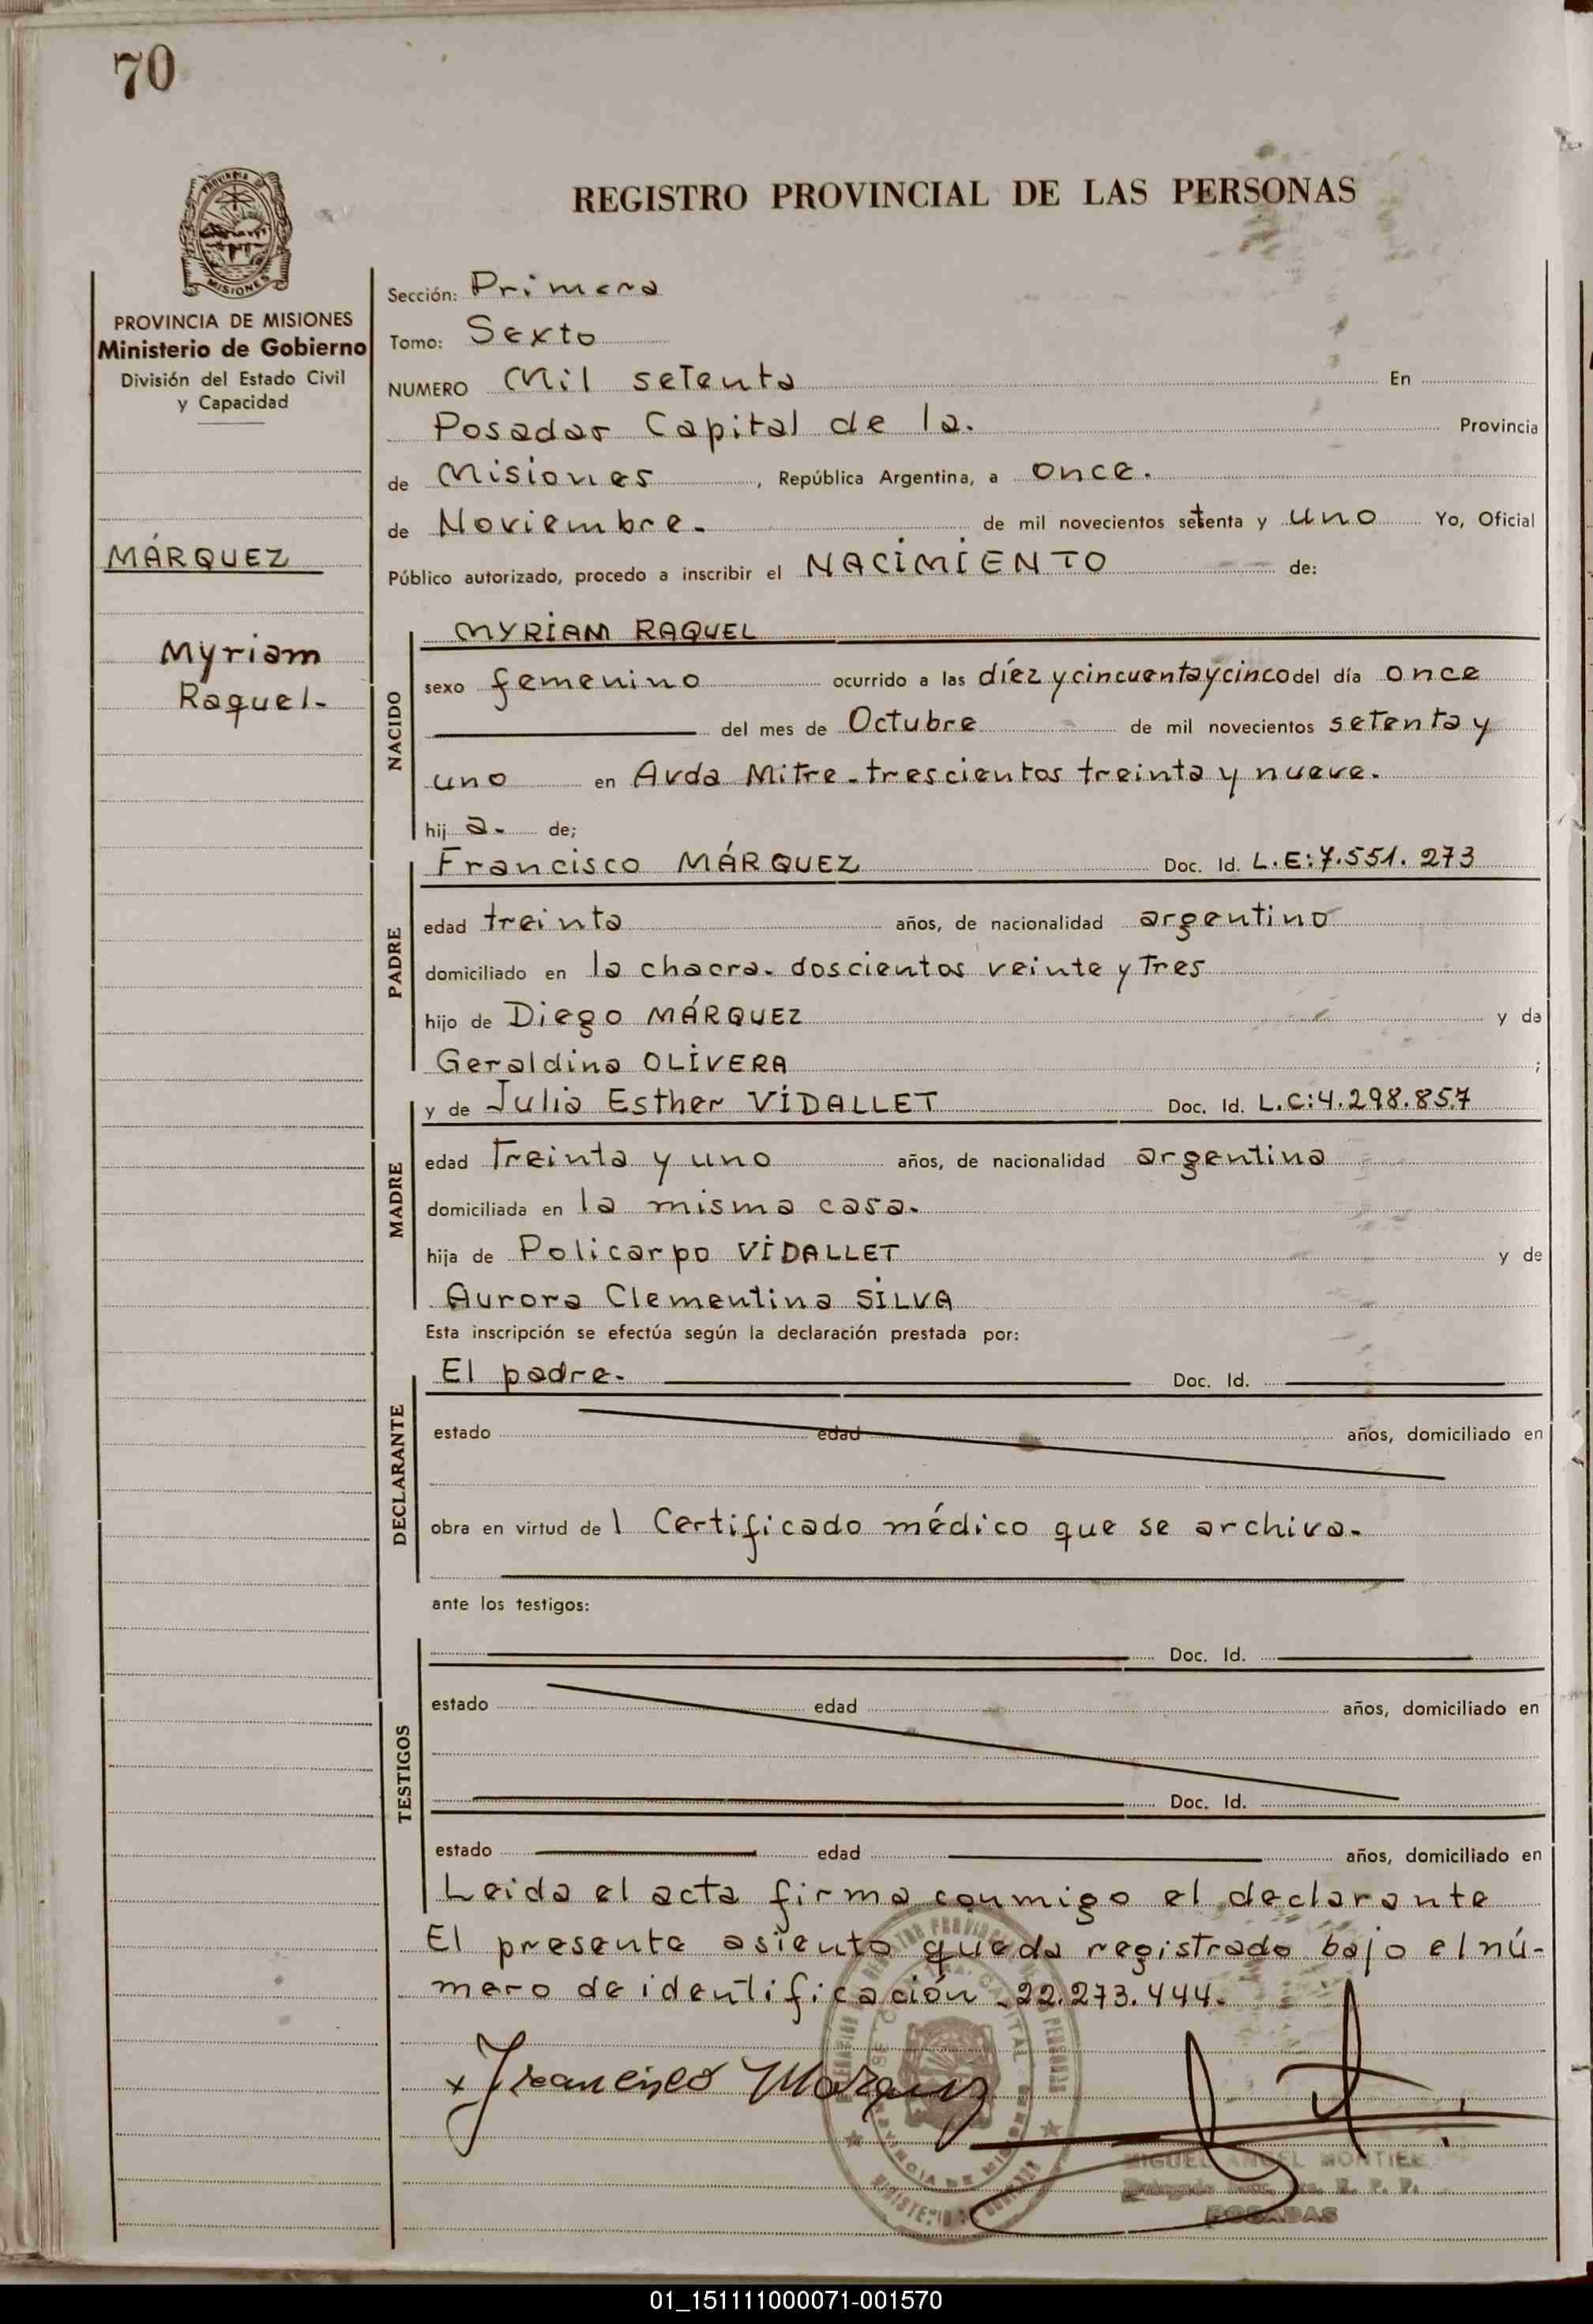 70
PROVINCIA DE
MISIONES
REGISTRO PROVINCIAL DE LAS PERSONAS
PROVINCIA DE MISIONES
Ministerio de Gobierno
División del Estado Civil
y Capacidad
MÁRQUEZ
Myriam
Raquel-
Sección: Primera
Tomo: Sexto
NUMERO Mil setenta En
Posadas Capital de la. Provincia
de Misiones, República Argentina, a once.
de Noviembre. de mil novecientos setenta y uno Yo, Oficial
Público autorizado, procedo a inscribir el NACIMIENTO de:
NACIDO
MYRIAM RAQUEL
sexo femenino ocurrido a las díez y cincuenta y cinco del día once
del mes de Octubre de mil novecientos setenta y
uno en Avda Mitre-trescientos treinta y nueve.
hij a- de;
PADRE
Francisco MÁRQUEZ Doc. Id. L.E:7.551.273
edad treinta años, de nacionalidad argentino
domiciliado en la chacra. doscientos veinte y Tres
hijo de Diego MÁRQUEZ y de
Geraldina OLIVERA ;
MADRE
y de Julia Esther VIDALLET Doc. Id. L.C:4.298.857
edad Treinta y uno años, de nacionalidad argentina
domiciliada en la misma casa.
hija de Policarpo VIDALLET y de
Aurora Clementina SILVA
Esta inscripción se efectúa según la declaración prestada por:
DECLARANTE
El padre. Doc. Id.
estado edad años, domiciliado en
obra en virtud de 1 Certificado médico que se archiva.
ante los testigos:
TESTIGOS
Doc. Id.
estado edad años, domiciliado en
Doc. Id.
estado edad años, domiciliado en
Leida el acta firma conmigo el declarante
El presente asiento queda registrado bajo el nú-
mero de identificación -22.273.444-
x Francisco Marquez
MIGUEL ANGEL MONTIEL
R. P. P.
POSADAS
01_151111000071-001570